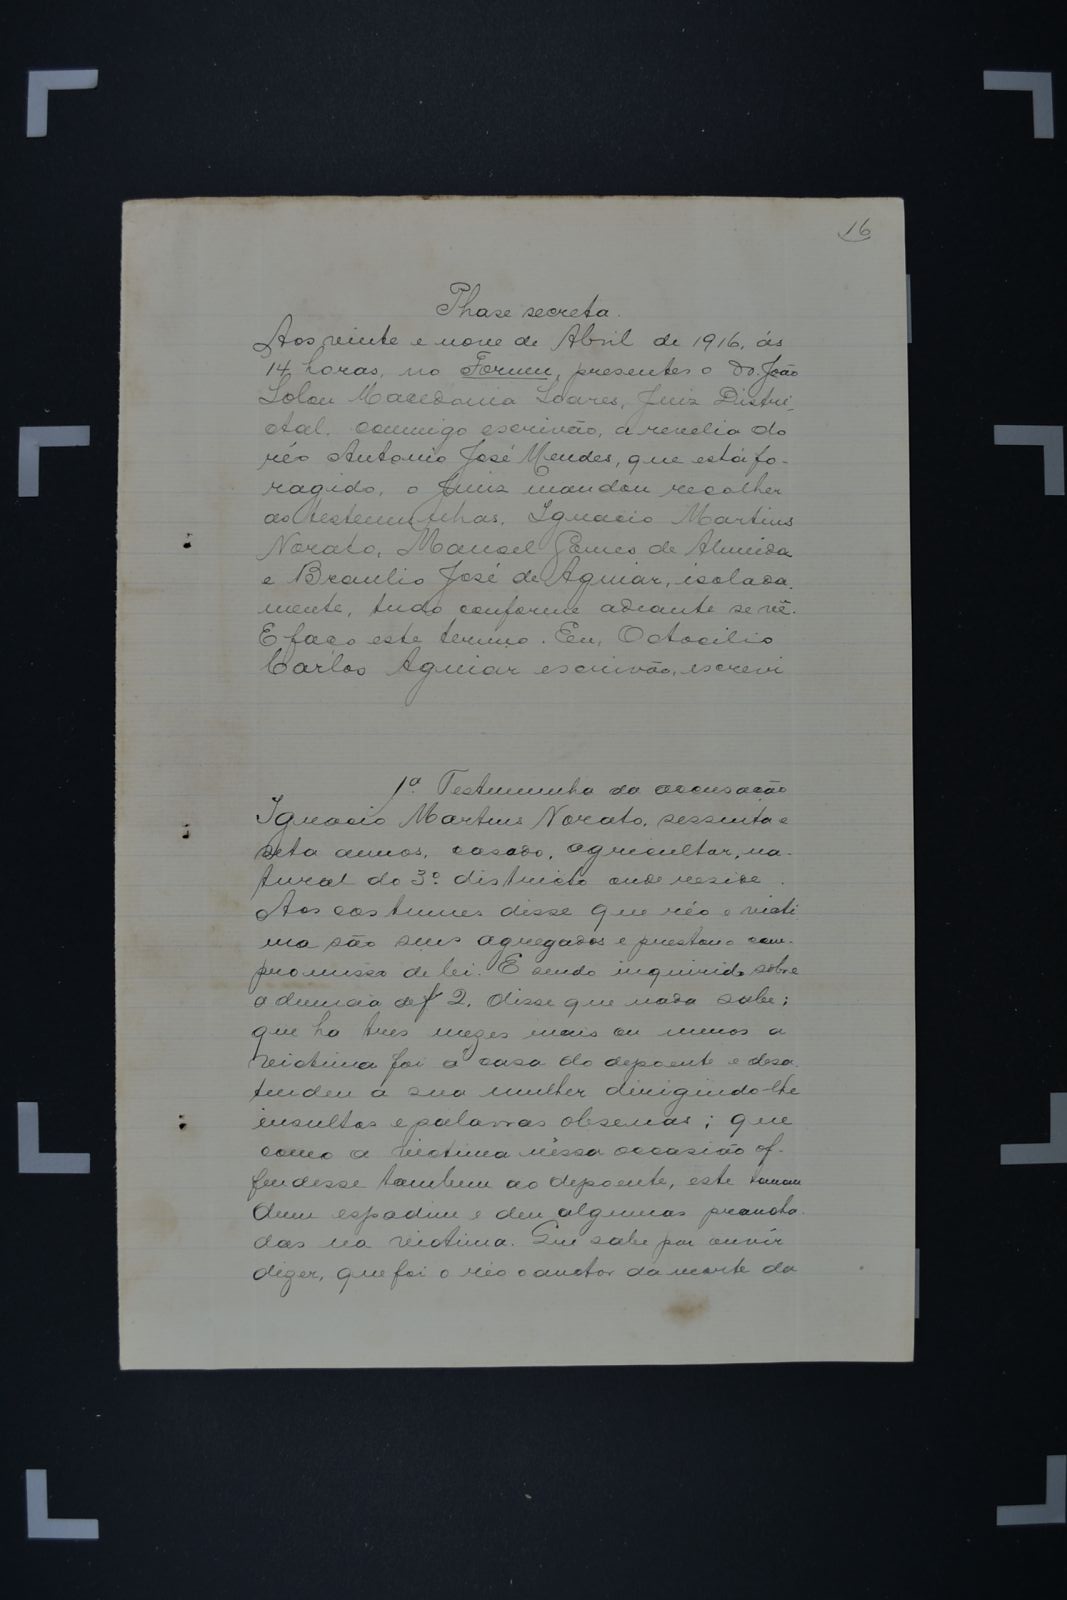 16
Phase secreta.
Aos vinte e nove de Abril de 1916, ás
14 horas, no Forum, presentes o Dr. João
Solon Macedonia Soares, Juiz Distri-
ctal, commigo escrivão, a revelia do
réo Antonio José Mendes, que está fo-
ragido, o Juiz mandou recolher
as testemunhas, Ignacio Martins
Norato, Manoel Gomes de Almeida
e Braulio José de Aguiar, isolada-
mente, tudo conforme adeante se vê.
E faço este termo. Eu, Octacilio
Carlos Aguiar escrivão, escrevi
1ª Testemunha da accusação
Ignacio Martins Norato, sessenta e
seta annos, casado, agricultor, na-
tural do 3º districto onde reside.
Aos costumes disse que réo e victi
ma são seus agregados e prestou com-
promisso de lei. E sendo inquirido sobre
a denuncia de f 2, disse que nada sabe;
que ha tres mezes mais ou menos a
victima foi á casa do depoente e desa-
tendeu a sua mulher dirigindo-lhe
insultos e palavras obsenas; que
como a victima nessa occasião of-
fendesse tambem ao depoente, este tomou
dum espadim e deu algumas pranxta-
das na victima. Que sabe por ouvir
dizer, que foi o réo o auctor da morte da